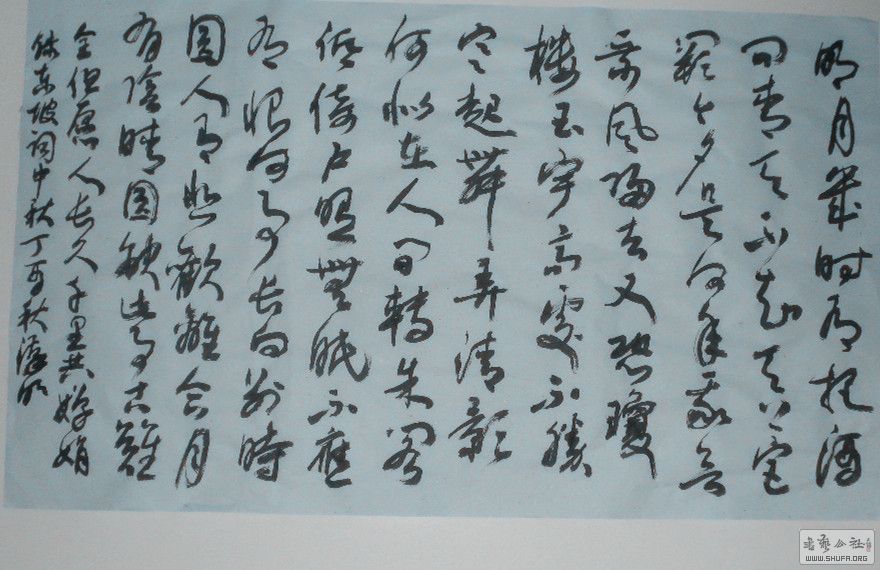 明月幾时有把酒
问青天不知天上宫
阙今夕是何年我欲
乘风归去又恐瓊
楼玉宇高處不勝
寒起舞弄清影
何似在人间轉朱阁
低倚户照無眠不應
有恨何事长向别時
圆人有悲歡離合月
有陰晴圆缺此事古難
全但愿人长久千里共嬋娟
东坡词中秋丁亥秋
书艺公社
WWW.SHUFA.ORG